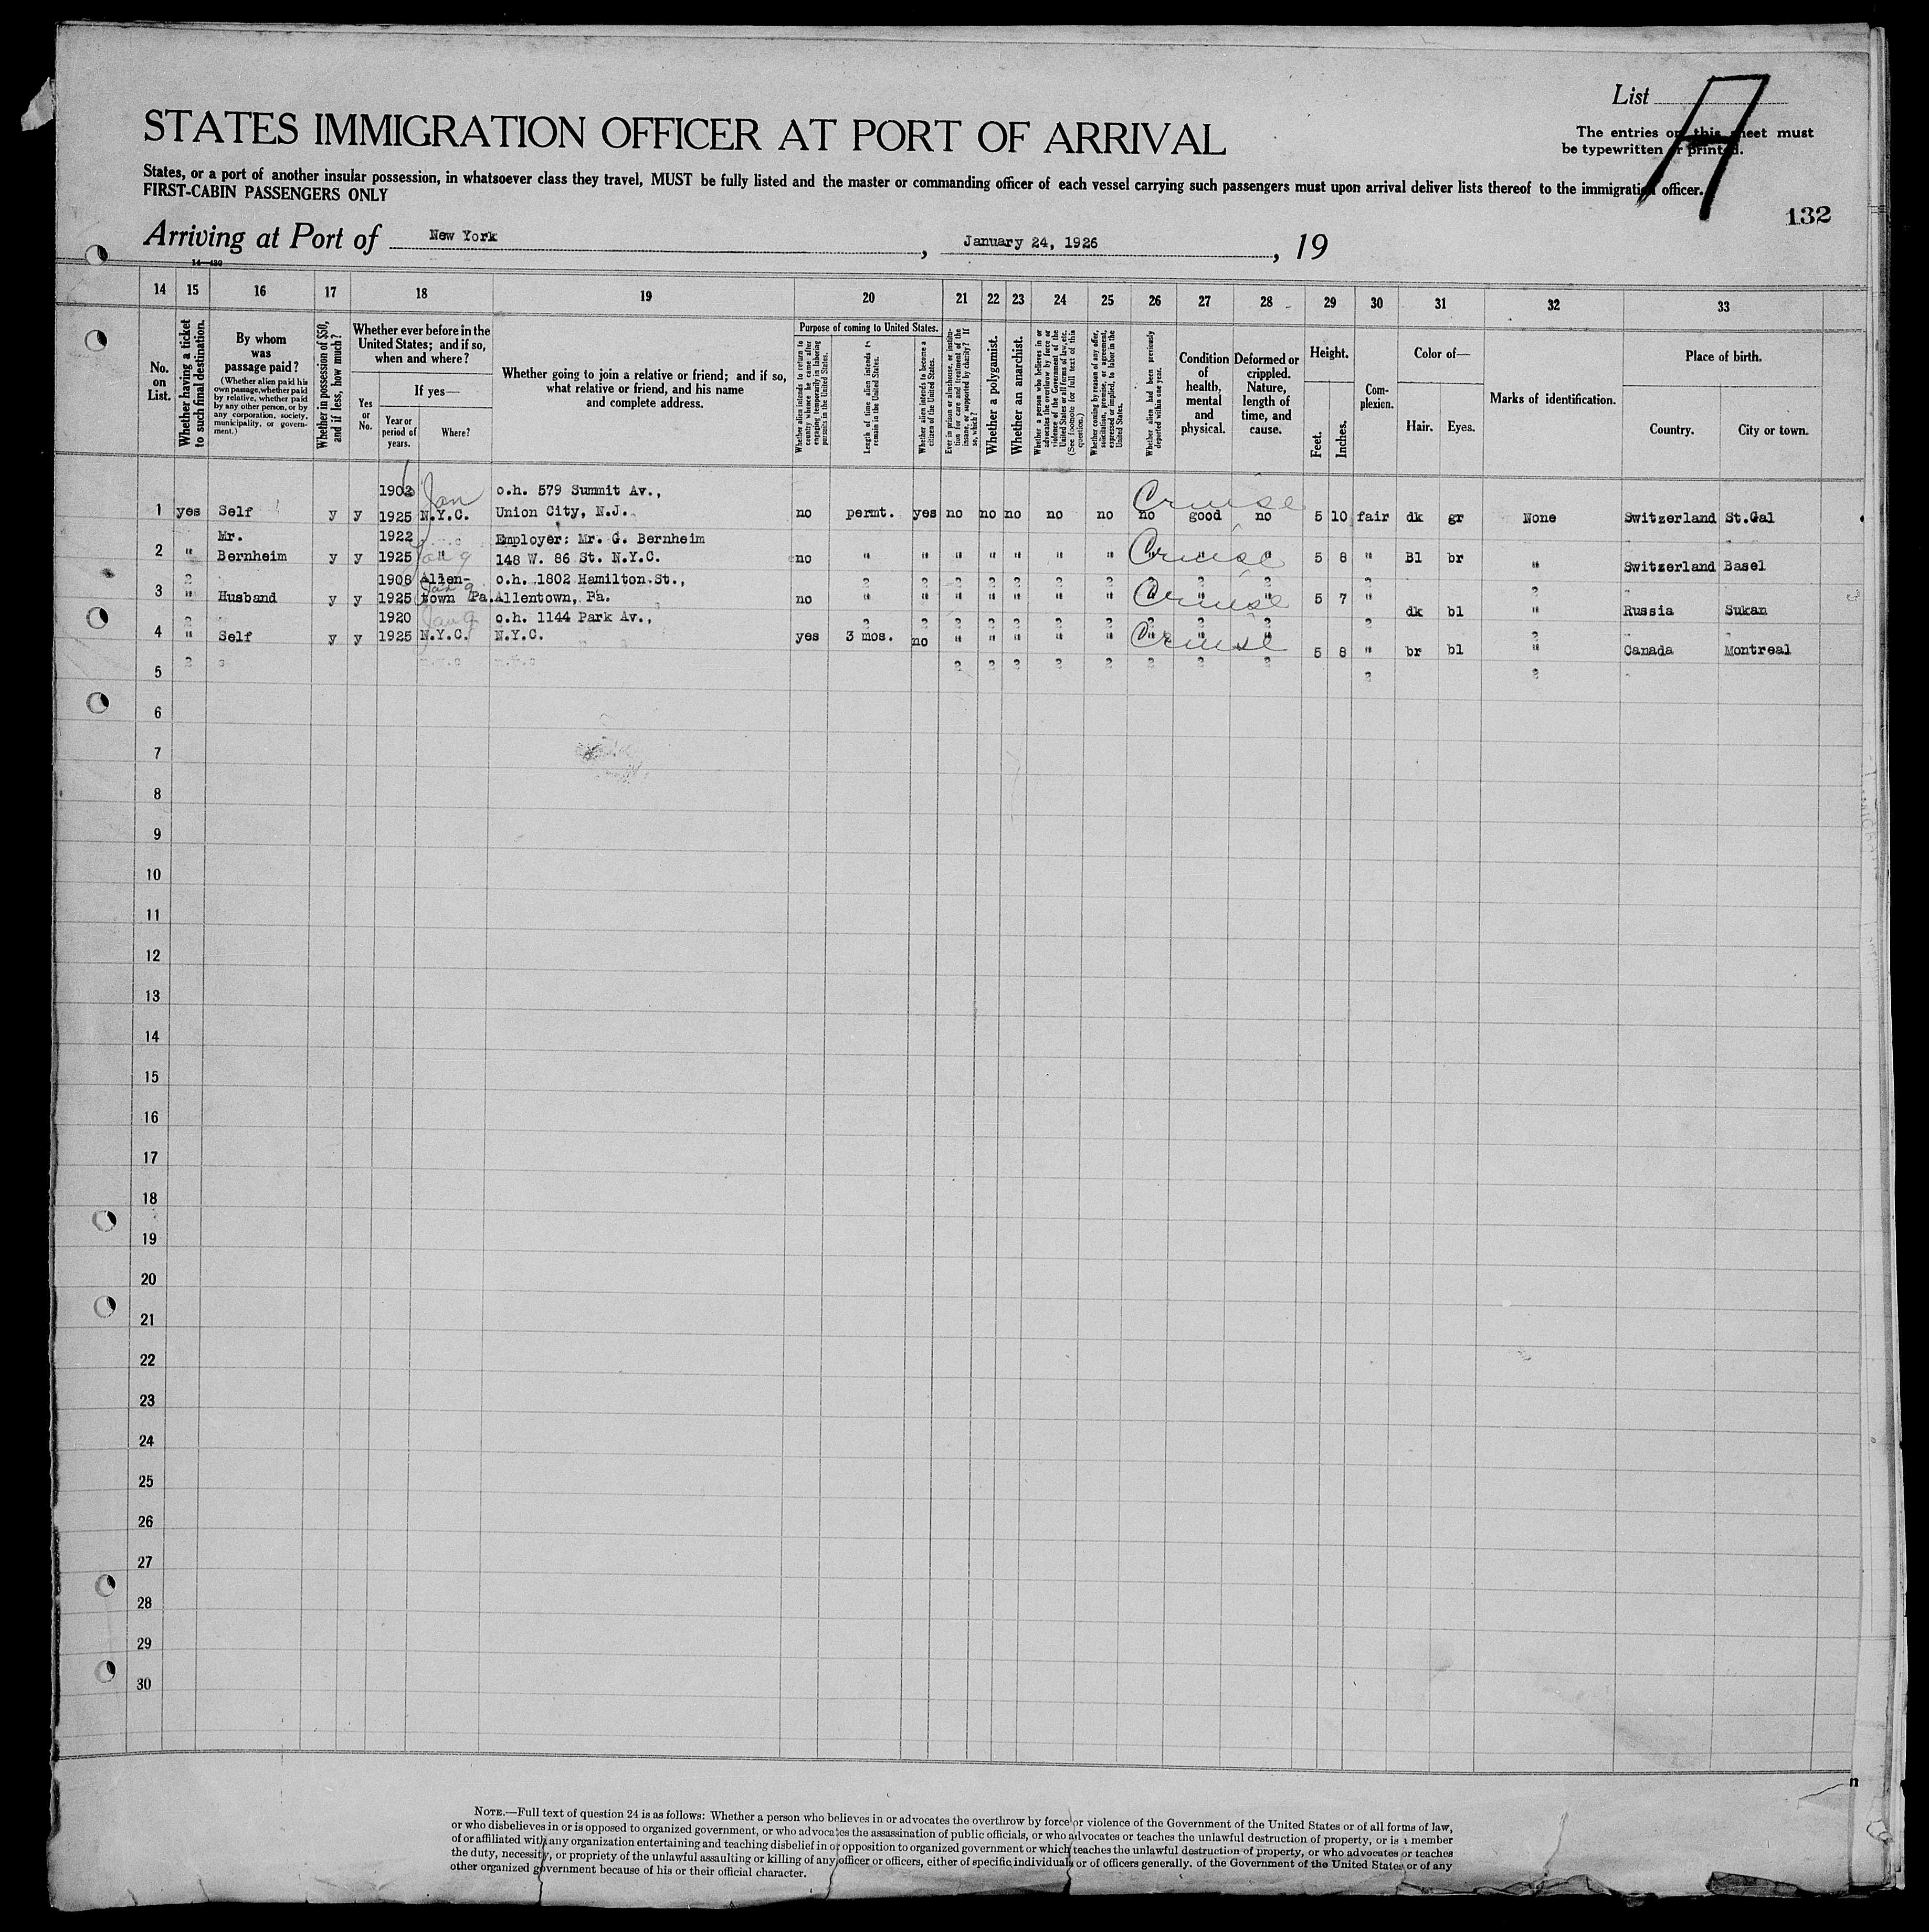 List A
The entries on this sheet must
be typewritten or printed.
STATES IMMIGRATION OFFICER AT PORT OF ARRIVAL
States, or a port of another insular possession, in whatsoever class they travel, MUST be fully listed and the master or commanding officer of each vessel carrying such passengers must upon arrival deliver lists thereof to the immigration officer.
FIRST-CABIN PASSENGERS ONLY
132
Arriving at Port of New York, January 24, 1926, 19
14—430
14 15 16 17 18 19 20 21 22 23 24 25 26 27 28 29 30 31 32 33
No. on List.
Whether having a ticket to such final destination.
By whom was passage paid?
(Whether alien paid his own passage, whether paid by relative, whether paid by any other person, or by any corporation, society, municipality, or government.)
Whether in possession of $50, and if less, how much?
Whether ever before in the United States; and if so, when and where?
Yes or No.
If yes—
Year or period of years.
Where?
Whether going to join a relative or friend; and if so, what relative or friend, and his name and complete address.
Purpose of coming to United States.
Whether alien intends to return to country whence he came after engaging temporarily in laboring pursuits in the United States.
Length of time alien intends to remain in the United States.
Whether alien intends to become a citizen of the United States.
Ever in prison or almshouse, or institution for care and treatment of the insane, or supported by charity? If so, which?
Whether a polygamist.
Whether an anarchist.
Whether a person who believes in or advocates the overthrow by force or violence of the Government of the United States or all forms of law, etc. (See footnote for full text of this question.)
Whether coming by reason of any offer, solicitation, promise, or agreement, expressed or implied, to labor in the United States.
Whether alien had been previously deported within one year.
Condition of health, mental and physical.
Deformed or crippled. Nature, length of time, and cause.
Height.
Feet. Inches.
Complexion.
Color of—
Hair. Eyes.
Marks of identification.
Place of birth.
Country. City or town.
1902 Jan o.h. 579 Summit Av., Cruise
1 yes Self y y 1925 N.Y.C. Union City, N.J. no permt. yes no no no no no no good no 5 10 fair dk gr None Switzerland St.Gal
Mr. 1922 Employer: Mr. G. Bernheim Cruise
2 " Bernheim y y 1925 " 148 W. 86 St. N.Y.C. no " " " " " " " " " " 5 8 " Bl br " Switzerland Basel
1908 Allen- o.h. 1802 Hamilton St., Cruise
3 " Husband y y 1925 town Pa. Allentown, Pa. no " " " " " " " " " " 5 7 " dk bl " Russia Sukan
1920 o.h. 1144 Park Av., Cruise
4 " Self y y 1925 N.Y.C. N.Y.C. yes 3 mos. no " " " " " " " " 5 8 " br bl " Canada Montreal
5
6
7
8
9
10
11
12
13
14
15
16
17
18
19
20
21
22
23
24
25
26
27
28
29
30
NOTE.—Full text of question 24 is as follows: Whether a person who believes in or advocates the overthrow by force or violence of the Government of the United States or of all forms of law,
or who disbelieves in or is opposed to organized government, or who advocates the assassination of public officials, or who advocates or teaches the unlawful destruction of property, or is a member
of or affiliated with any organization entertaining and teaching disbelief in or opposition to organized government or which teaches the unlawful destruction of property, or who advocates or teaches
the duty, necessity, or propriety of the unlawful assaulting or killing of any officer or officers, either of specific individuals or of officers generally, of the Government of the United States or of any
other organized government because of his or their official character.